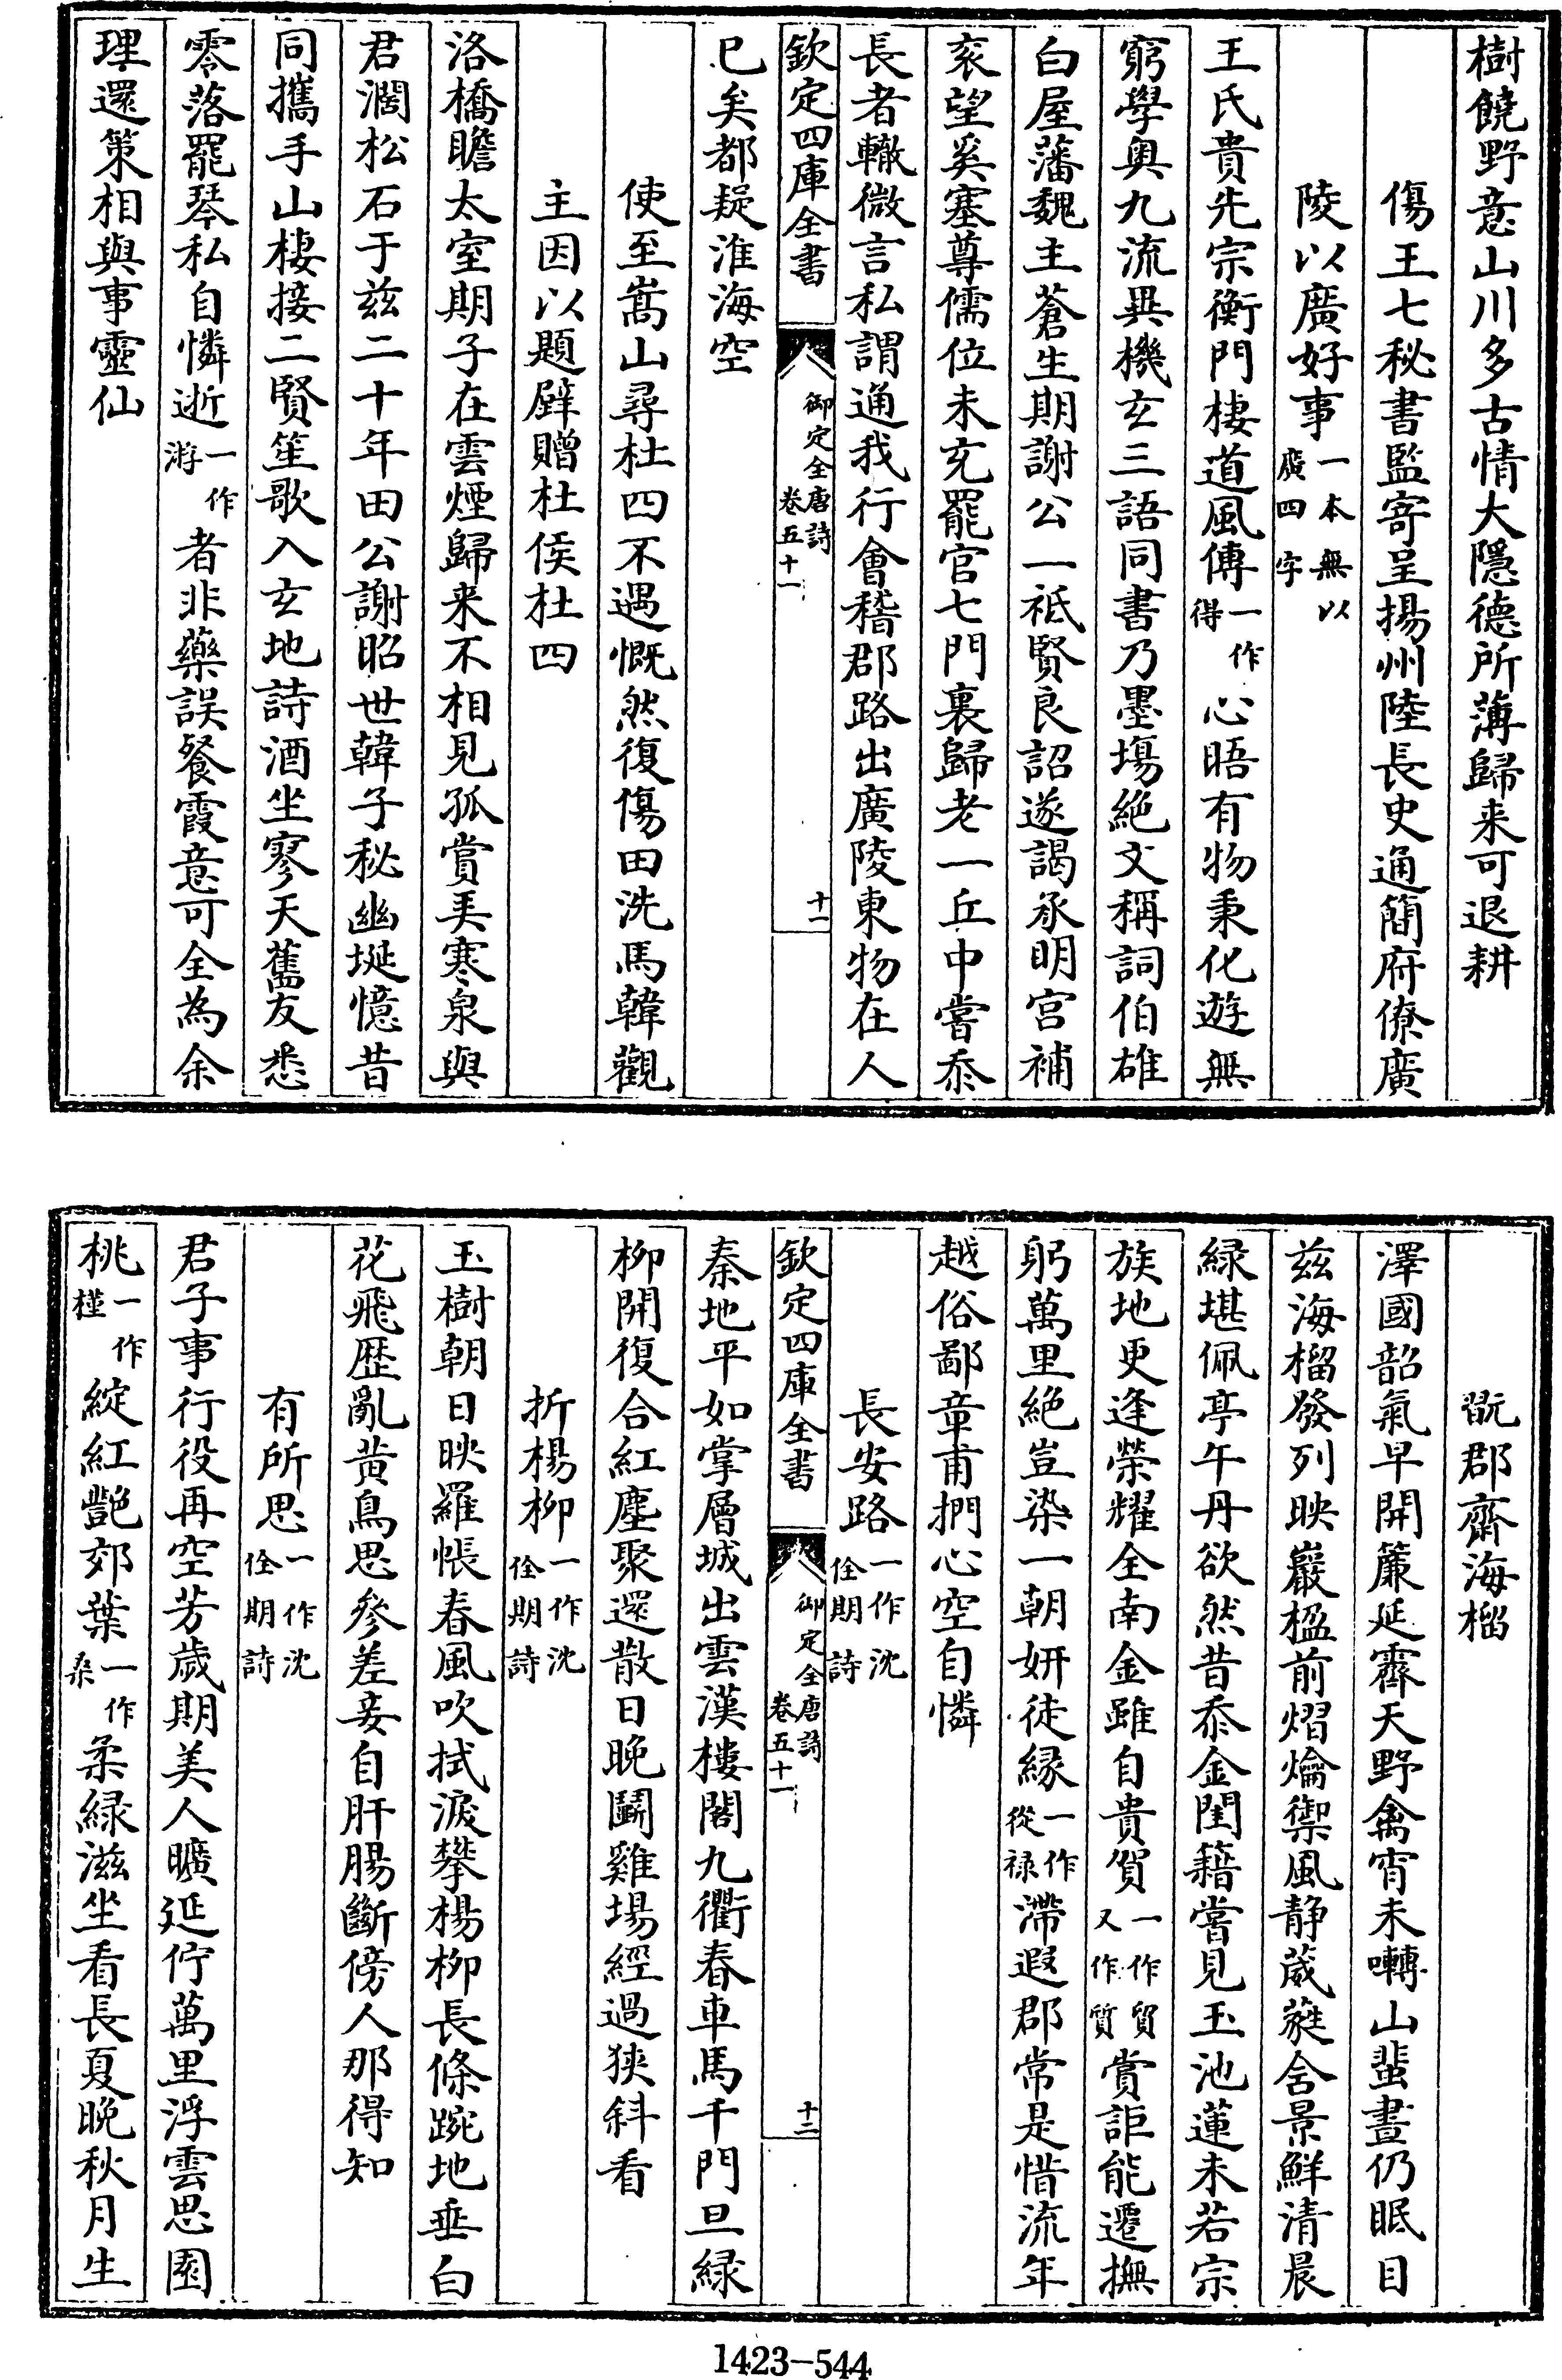 樹饒野意山川多古情大隱德所薄歸来可退耕
傷王七秘書監寄呈揚州陸長史通簡府僚廣
陵以廣好事一本無以廣四字
王氏貴先宗衡門棲道風傳一作得心晤有物秉化遊無
窮學奥九流異機玄三語同書乃墨塲絶文稱詞伯雄
白屋藩魏主蒼生期謝公一祗賢良詔遂謁承明宫補
衮望奚塞尊儒位未充罷官七門裏歸老一丘中嘗忝
長者轍微言私謂通我行會稽郡路出廣陵東物在人
欽定四庫全書 御定全唐詩卷五十一 十一
已矣都疑淮海空
使至嵩山尋杜四不遇慨然復傷田洗馬韓觀
主因以題壁贈杜侯杜四
洛橋瞻太室期子在雲煙歸来不相見孤賞弄寒泉與
君濶松石于兹二十年田公謝昭世韓子秘幽埏憶昔
同攜手山棲接二賢笙歌入玄地詩酒坐寥天舊友悉
零落罷琴私自憐逝一作游者非藥誤餐霞意可全為余
理還策相與事靈仙
翫郡齋海榴
澤國韶氣早開簾延霽天野禽宵未囀山蜚晝仍眠目
兹海榴發列映巖楹前熠爚禦風静葳蕤含景鮮清晨
緑堪佩亭午丹欲然昔忝金閨籍嘗見玉池蓮未若宗
族地更逢榮耀全南金雖自貴賀一作貿又作質賞詎能遷撫
躬萬里絶豈染一朝妍徒縁一作從禄滯遐郡常是惜流年
越俗鄙章甫捫心空自憐
長安路一作沈佺期詩
欽定四庫全書 御定全唐詩卷五十一 十二
秦地平如掌層城出雲漢樓閣九衢春車馬千門旦緑
柳開復合紅塵聚還散日晚鬭雞場經過狹斜看
折楊柳一作沈佺期詩
玉樹朝日映羅帳春風吹拭淚攀楊柳長條踠地垂白
花飛歴亂黄鳥思參差妾自肝腸斷傍人那得知
有所思一作沈佺期詩
君子事行役再空芳歲期美人曠延佇萬里浮雲思園
桃一作槿綻紅艷郊葉一作桑柔緑滋坐看長夏晚秋月生
1423-544